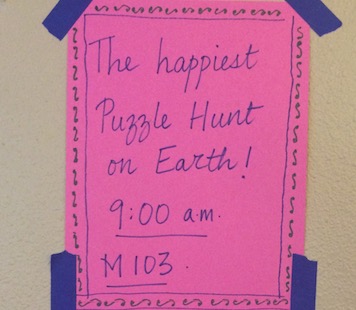 The happiest
Puzzle Hunt
on Earth!
9:00 a.m.
M 103.